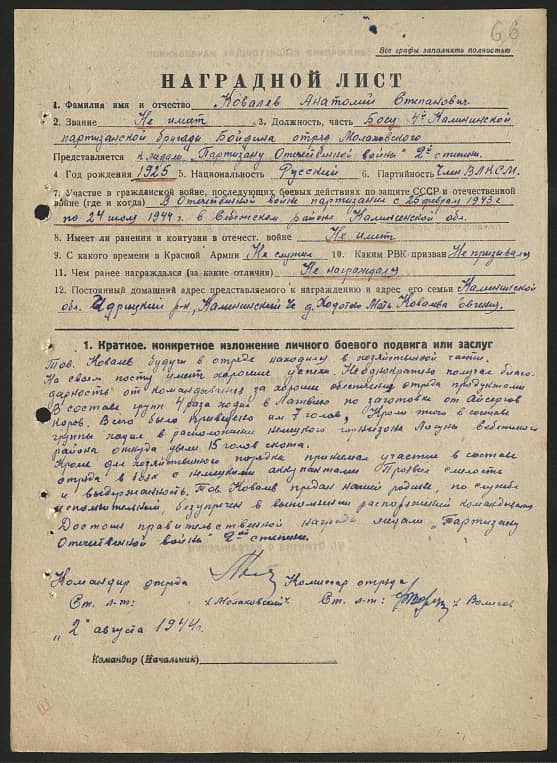 66
Все графы заполнять полностью
НАГРАДНОЙ ЛИСТ
1. Фамилия имя и отчество Ковалев Анатолий Степанович.
2. Звание Не имеет 3. Должность, часть Боец 4й Калининской
партизанской бригады Бойдина отряд Молоковского
Представляется к медали „Партизану Отечественной войны" 2й степени.
4. Год рождения 1925 5. Национальность Русский 6. Партийность Член ВЛКСМ.
7. Участие в гражданской войне, последующих боевых действиях по защите СССР и отечественной
войне (где и когда) В Отечественной войне партизании с 25 февраля 1943 г
по 24 июля 1944 г. в Себежском районе Калининской обл.
8. Имеет ли ранения и контузии в отечест. войне Не имеет
9. С какого времени в Красной Армии Не служил 10. Каким РВК призван Не призывался
11. Чем ранее награждался (за какие отличия) Не награждался
12. Постоянный домашний адрес представляемого к награждению и адрес его семьи Калининской
обл. Идрицкий р-н, Калининский с/с д. Мать Ковалева
1. Краткое, конкретное изложение личного боевого подвига или заслуг
Тов. Ковалев будучи в отряде находился в хозяйственной части.
На своем посту имеет хорошие успехи. Неоднократно получал благо-
дарность от командования за хорошее обеспечение отряда продуктами
В составе групп 4 раза ходил в Латвию по заготовке от Айсаргов
коров. Всего было приведено им 7 голов. Кроме того в составе
группы ходил в расположение немецкого гарнизона Себежского
района откуда увели 15 голов скота.
Кроме хозяйственного порядка принимал участие в составе
отряда в боях с немецкими аккупантами. Проявил смелость
и выдержанность. Тов. Ковалев предан нашей родине, по службе
исполнительный, безупречен в выполнении распоряжений командования
Достоин правительственной награды медали „Партизану
Отечественной войны" 2ой степени.
Командир отряда Комиссар отряда
Ст. л-т: /Молоковский/ Ст. л-т:
„2" августа 1944 г.
Командир (Начальник)